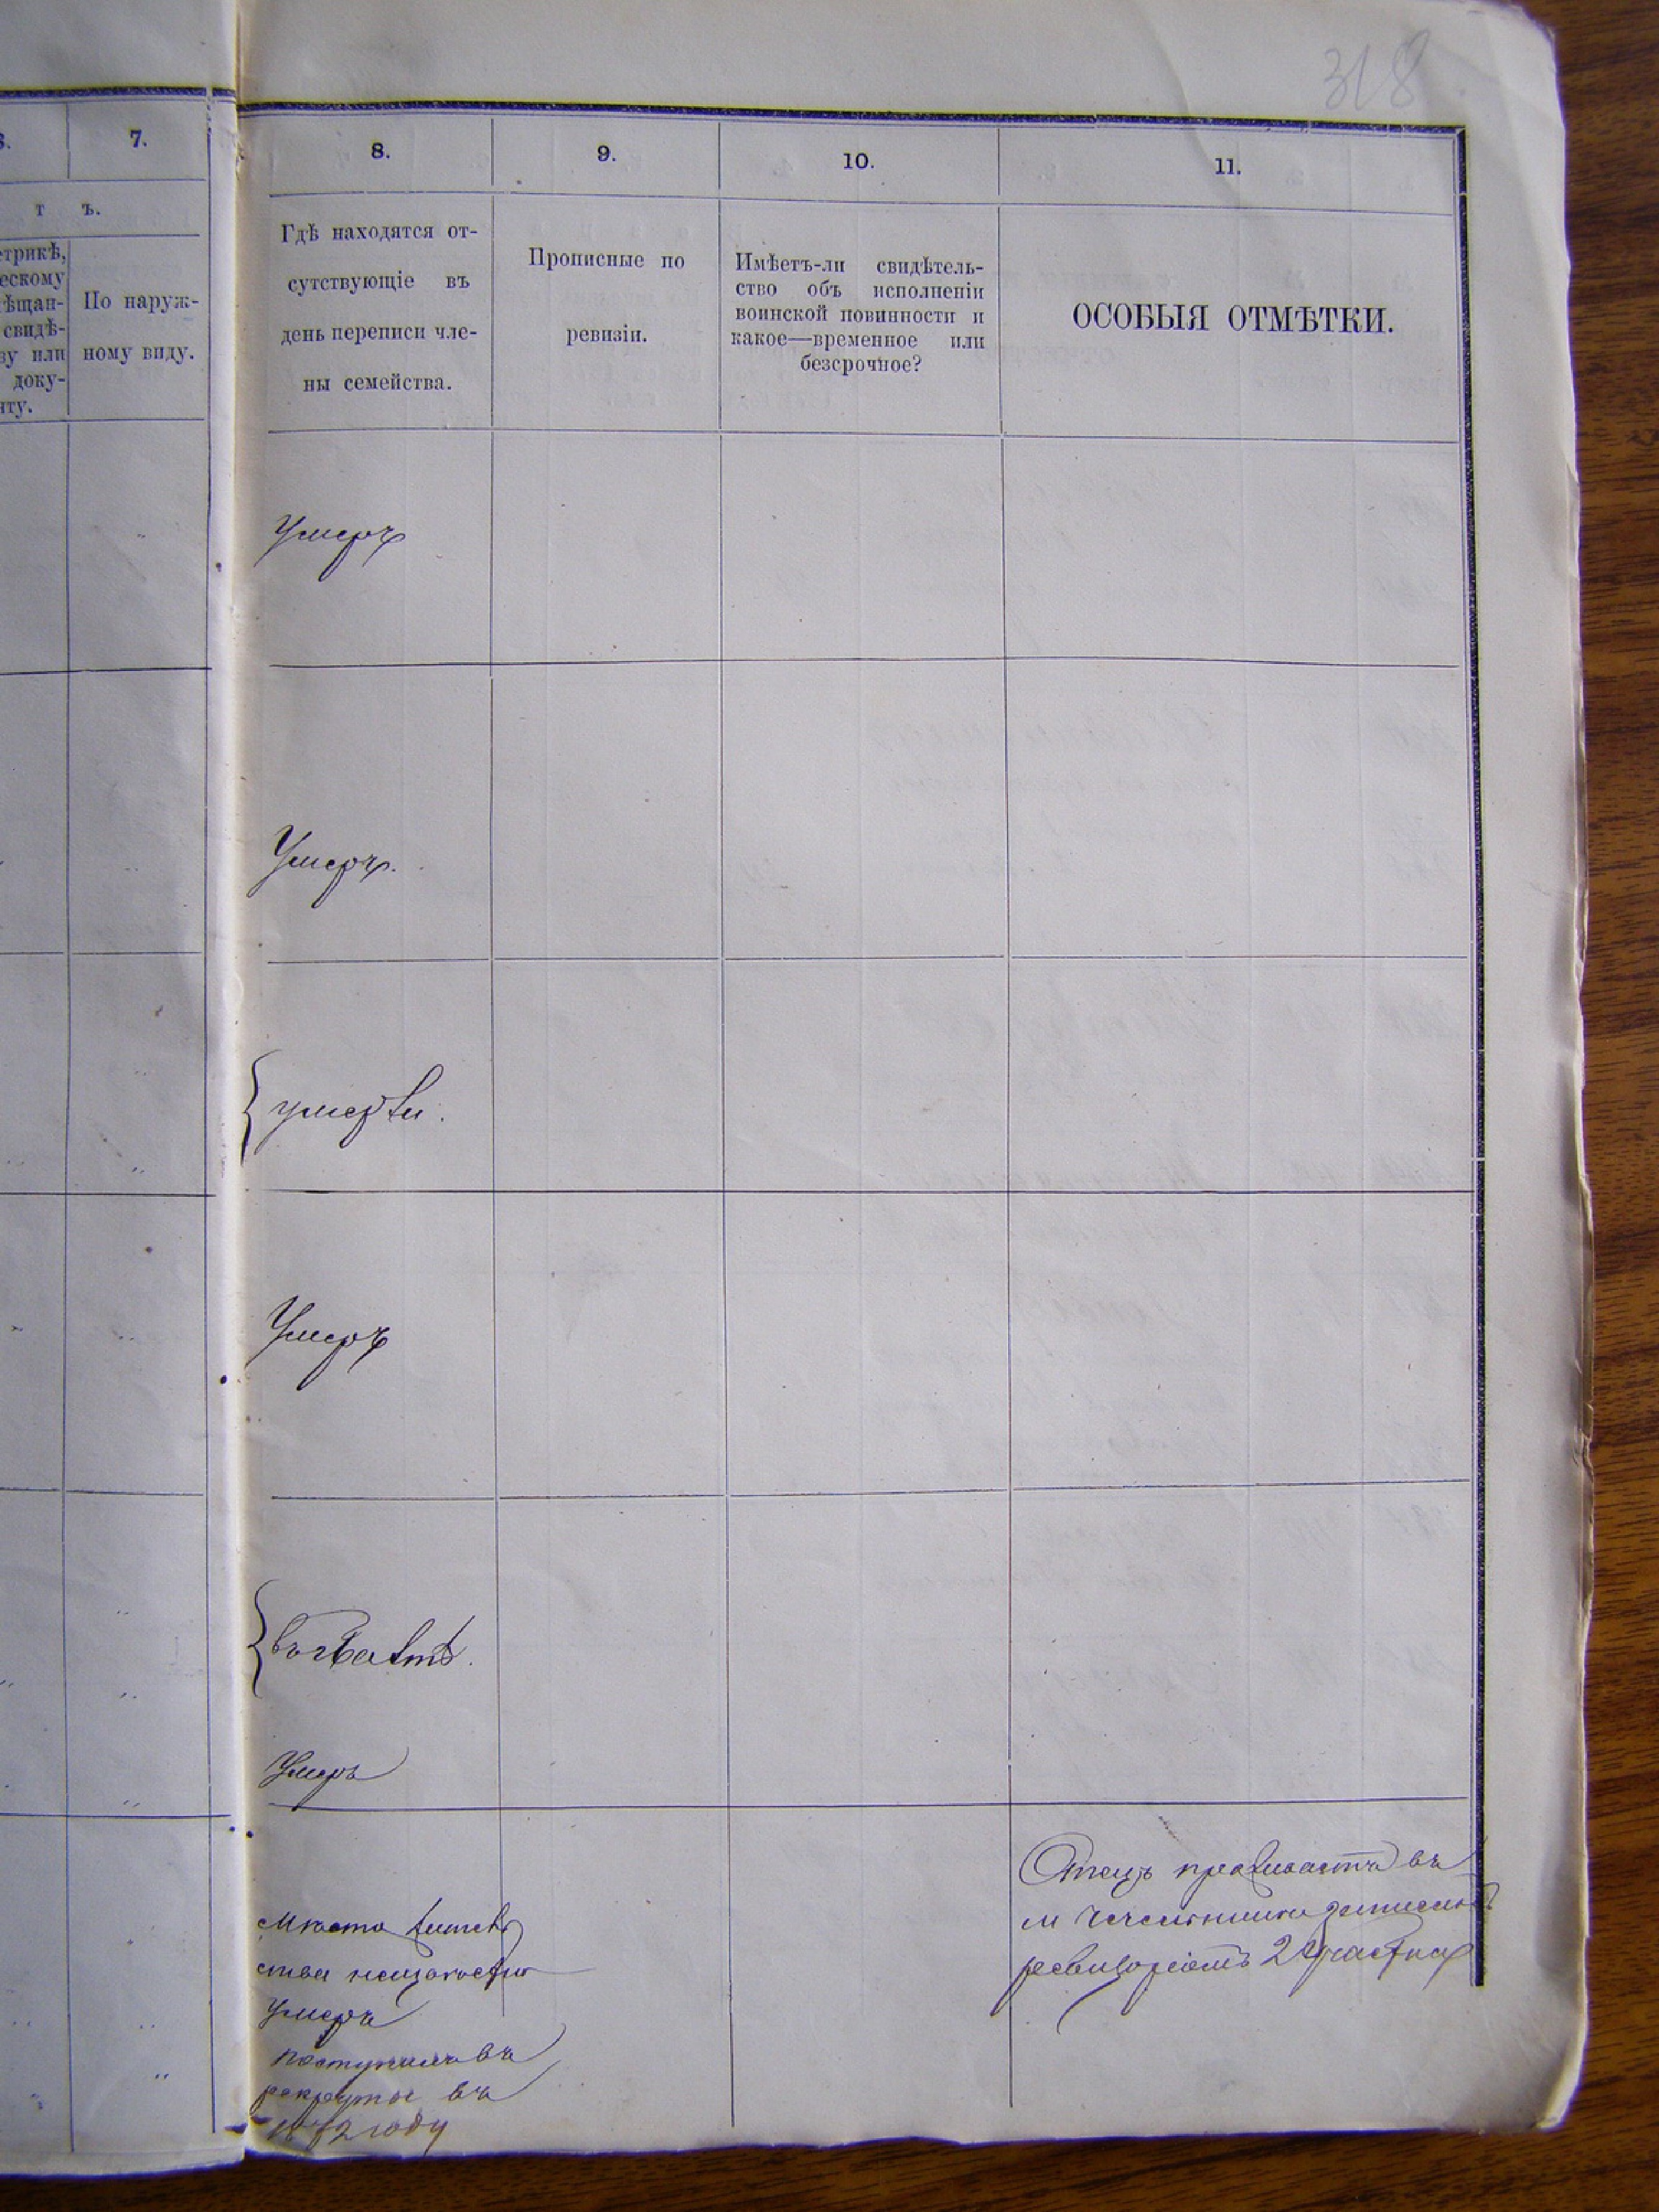 318
7.
8.
9.
10.
11.
т ъ.
етрикѣ,
ескому
ѣщан-
свидѣ-
ву или
доку-
нту.
По наруж-
ному виду.
Гдѣ находятся от-
сутствующіе въ
день переписи чле-
ны семейства.
Прописные по
ревизіи.
Имѣетъ-ли свидѣтель-
ство объ исполненіи
воинской повинности и
какое—временное или
безсрочное?
ОСОБЫЯ ОТМѢТКИ.
Умеръ
Умеръ.
умерли.
Умеръ
Умеръ
Отецъ проживаетъ въ
м
ревизоромъ 2 участка
Место житель
ства неизвестно
Умеръ
поступилъ въ
рекруты въ
1872 году